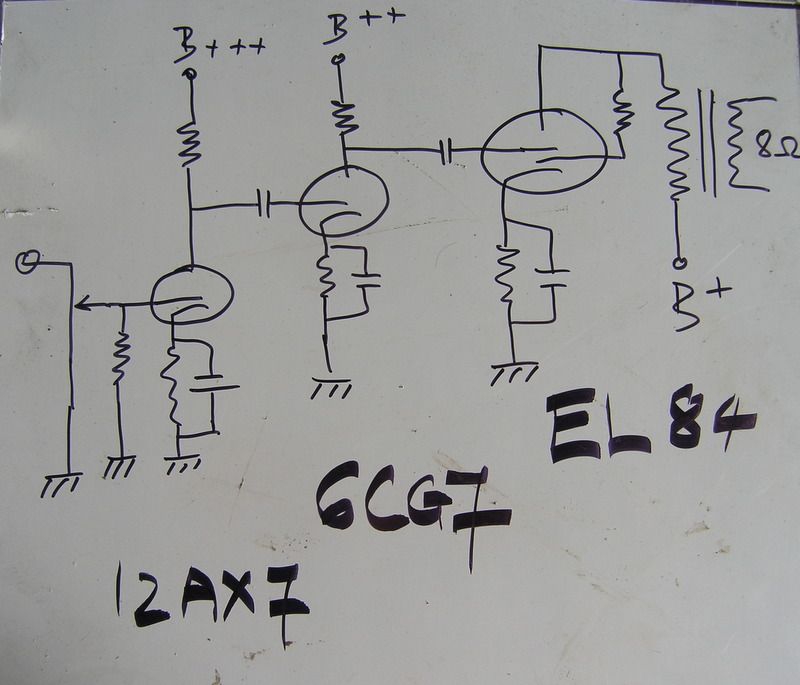 B+++
B++
8Ω
B+
EL84
6CG7
12AX7